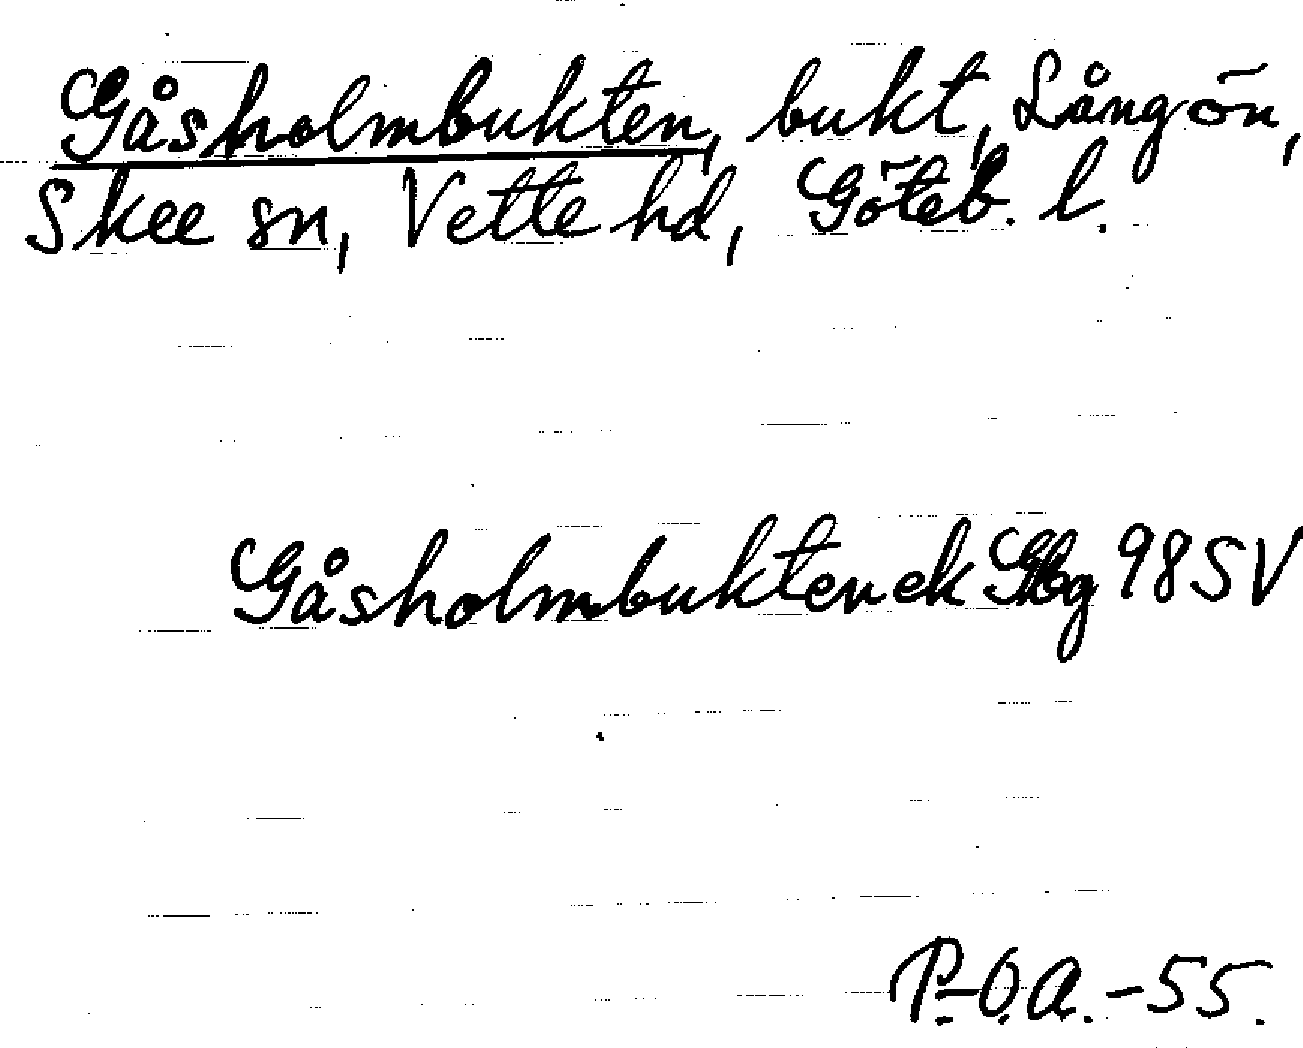 Gåsholmbukten, bukt, Långön,
Skee sn, Vette hd, Göteb. l.
Gåsholmbukten ek Gbg 98 SV
P.-O.A. -55.